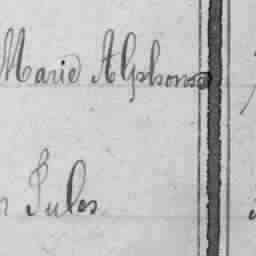 Marie Alphonse
Jules